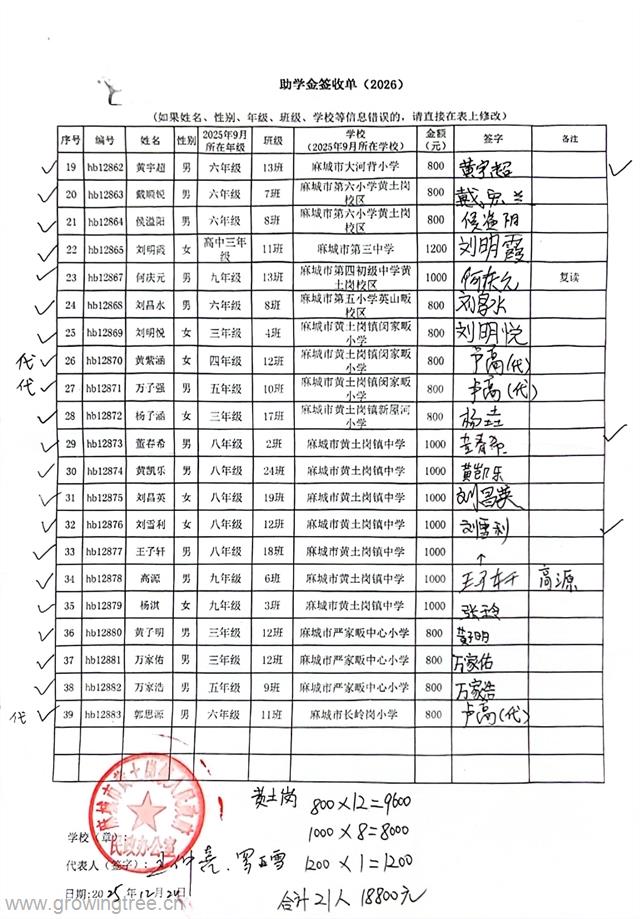 助学金签收单（2026）
(如果姓名、性别、年级、班级、学校等信息错误的，请直接在表上修改)
序号 编号 姓名 性别 2025年9月所在年级 班级 学校（2025年9月所在学校） 金额（元） 签字 备注
19 hb12862 黄宇超 男 六年级 13班 麻城市大河背小学 800 黄宇超
20 hb12863 戴顺悦 男 六年级 7班 麻城市第六小学黄土岗校区 800
21 hb12864 侯溢阳 男 六年级 8班 麻城市第六小学黄土岗校区 800 侯溢阳
22 hb12865 刘明霞 女 高中三年级 11班 麻城市第三中学 1200 刘明霞
23 hb12867 何庆元 男 九年级 13班 麻城市第四初级中学黄土岗校区 1000 何庆元 复读
24 hb12868 刘昌水 男 六年级 8班 麻城市第五小学英山畈校区 800 刘昌水
25 hb12869 刘明悦 女 三年级 4班 麻城市黄土岗镇闵家畈小学 800 刘明悦
代 26 hb12870 黄紫涵 女 四年级 12班 麻城市黄土岗镇闵家畈小学 800 卢高(代)
代 27 hb12871 万子强 男 五年级 10班 麻城市黄土岗镇闵家畈小学 800 卢高(代)
28 hb12872 杨子涵 女 三年级 17班 麻城市黄土岗镇新屋河小学 800
29 hb12873 董春希 男 八年级 2班 麻城市黄土岗镇中学 1000 董春希
30 hb12874 黄凯乐 男 八年级 24班 麻城市黄土岗镇中学 1000 黄凯乐
31 hb12875 刘昌英 女 八年级 19班 麻城市黄土岗镇中学 1000 刘昌英
32 hb12876 刘雪利 女 八年级 12班 麻城市黄土岗镇中学 1000 刘雪利
33 hb12877 王子轩 男 八年级 18班 麻城市黄土岗镇中学 1000 ↑
34 hb12878 高源 男 九年级 6班 麻城市黄土岗镇中学 1000 王子轩 高源
35 hb12879 杨淇 女 九年级 3班 麻城市黄土岗镇中学 1000
36 hb12880 黄子明 男 三年级 12班 麻城市严家畈中心小学 800 黄子明
37 hb12881 万家佑 男 三年级 12班 麻城市严家畈中心小学 800 万家佑
38 hb12882 万家浩 男 五年级 9班 麻城市严家畈中心小学 800 万家浩
代 39 hb12883 郭思源 男 六年级 11班 麻城市长岭岗小学 800 卢高(代)
黄土岗 800×12=9600
1000×8=8000
1200×1=1200
合计21人 18800元
学校（章）:
民政办公室
代表人（签字）:
日期:2025年12月24日
www.growingtree.cn